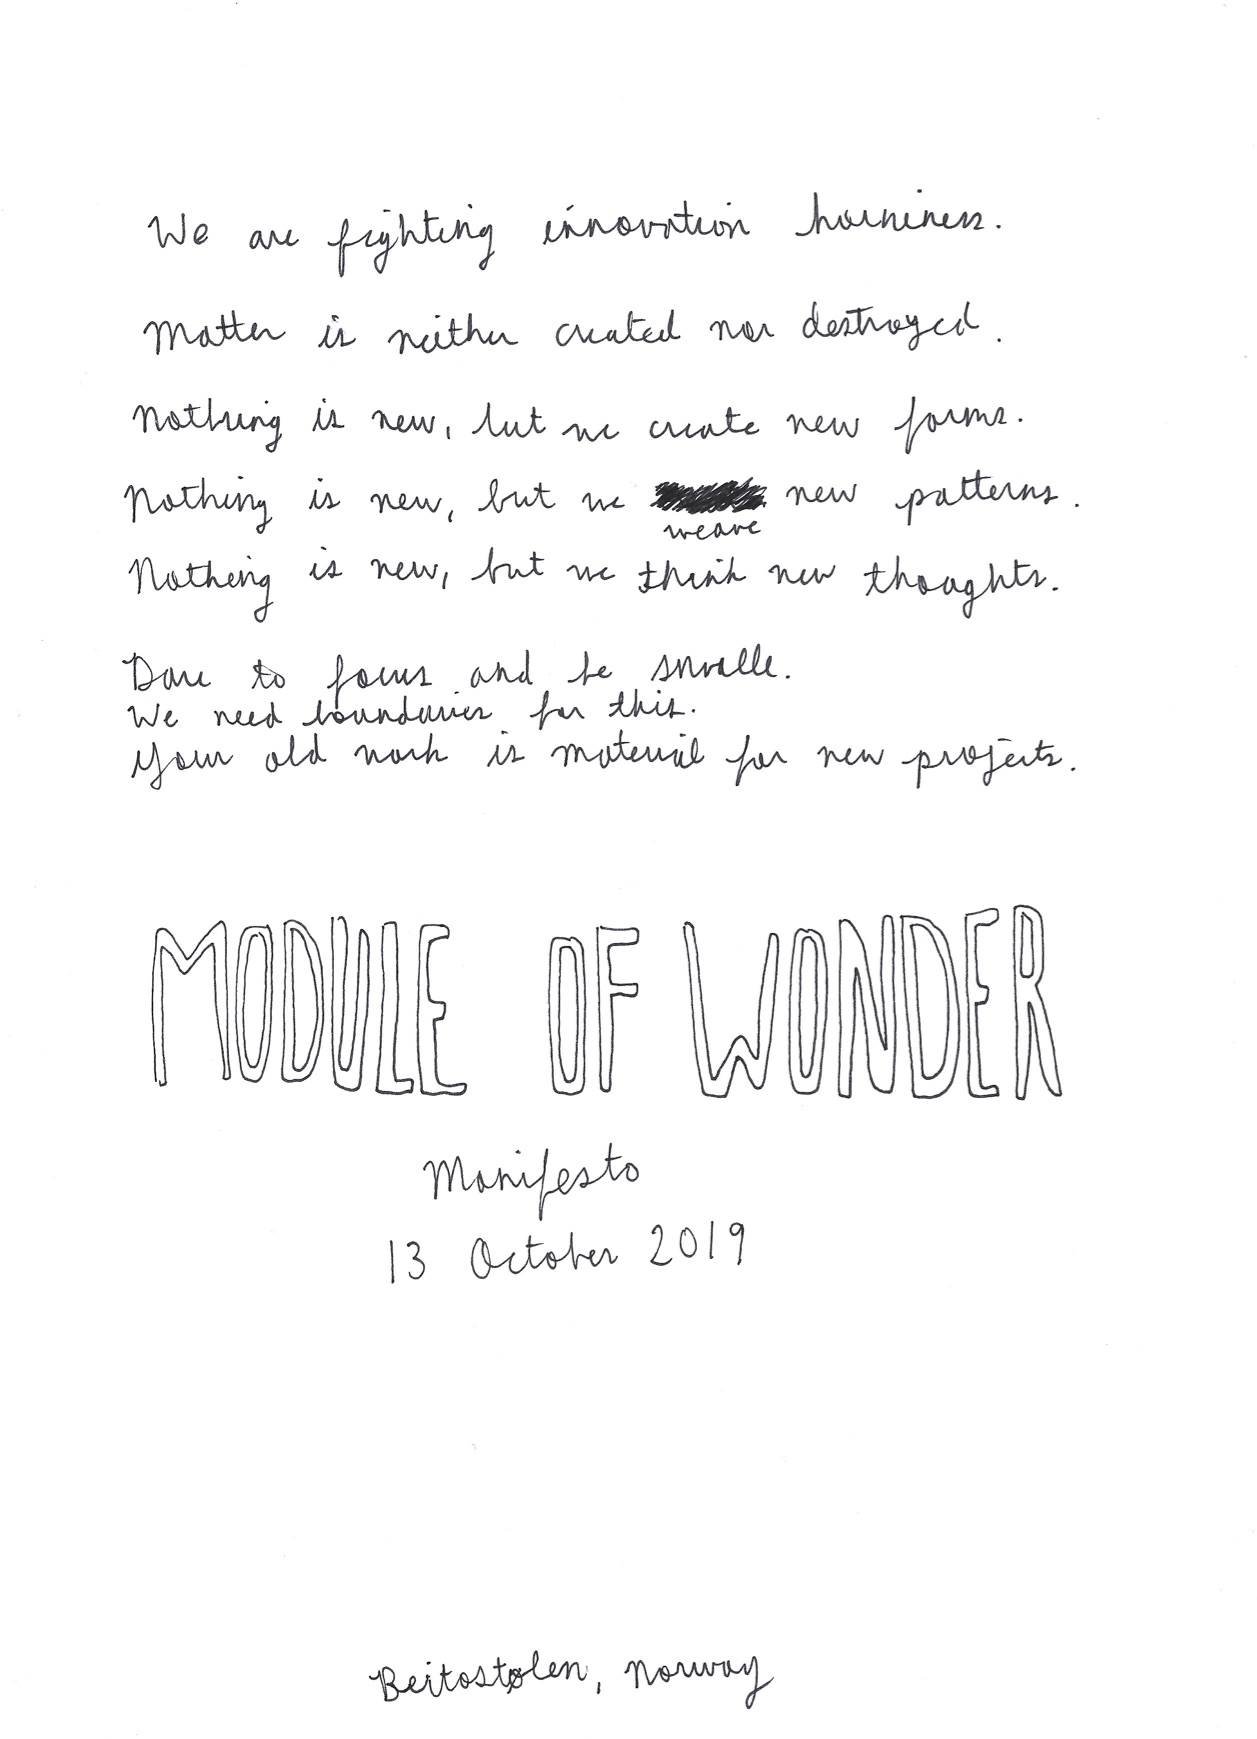 We are fighting innovation horniness.
Matter is neither created nor destroyed.
Nothing is new, but we create new forms.
Nothing is new, but we weave new patterns.
Nothing is new, but we think new thoughts.
Dare to focus and be smalle.
We need boundaries for this.
Your old work is material for new projects.
MODULE OF WONDER
Manifesto
13 October 2019
Beitostølen, Norway